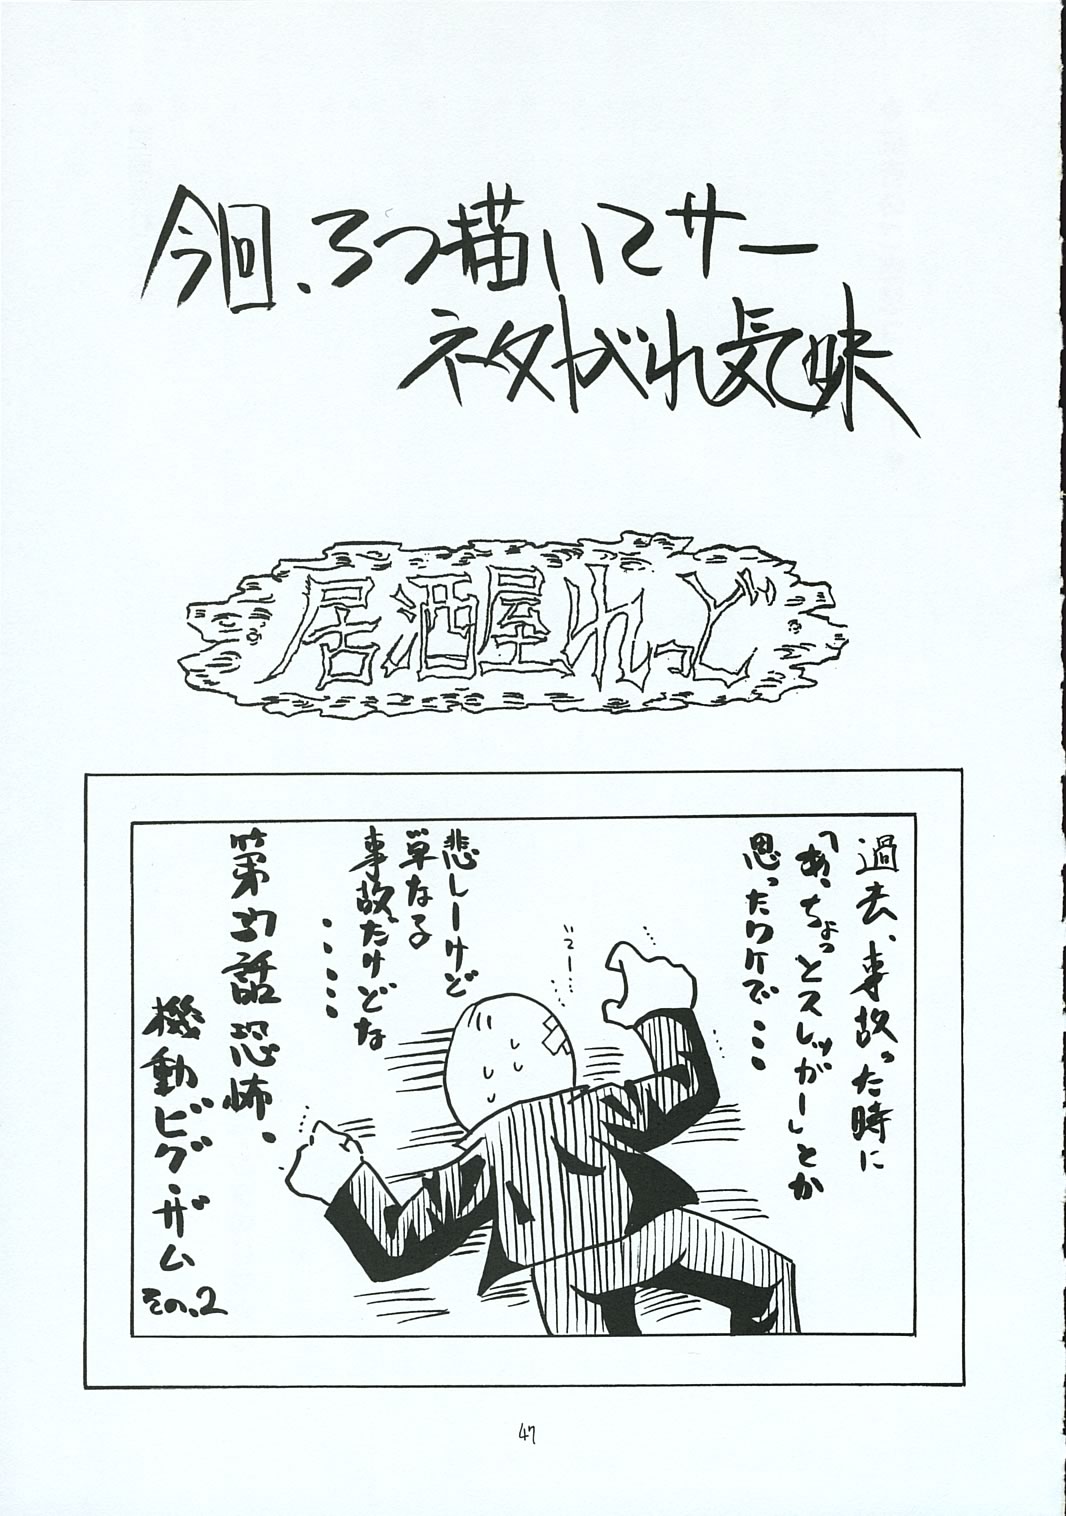 今回、3つ描いてサー
ネタがれ気味
居酒屋れっど
過去、事故った時に
「あ、ちょっとスレッガー」とか
思ったワケで・・・
でー・・・
悲しーけど
単なる
事故だけどな
・・・・
第37話 恐怖、
機動ビグ・ザム
その、2
47